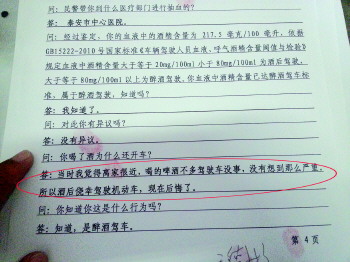 问：民警带你到什么医疗部门进行抽血的？
答：泰安市中心医院。
问：经过鉴定，你的血液中的酒精含量为 217.5 毫克/100 毫升，依据
GB15222-2010 号国家标准《车辆驾驶人员血液、呼气酒精含量阈值与检验》
规定血液中酒精含量大于等于 20mg/100ml 小于 80mg/100ml 为酒后驾驶，
大于等于 80mg/100ml 以上为醉酒驾驶。你血液中酒精含量已达醉酒驾车标
准，属于醉酒驾驶，知道吗？
答：我知道了。
问：对此你有异议吗？
答：没有异议。
问：你喝了酒为什么还开车？
答：当时我觉得离家很近，喝的啤酒不多驾驶车没事，没有想到那么严重，
所以酒后侥幸驾驶机动车，现在后悔了。
问：你知道你这是什么行为吗？
答：知道，是醉酒驾车。
第 4 页